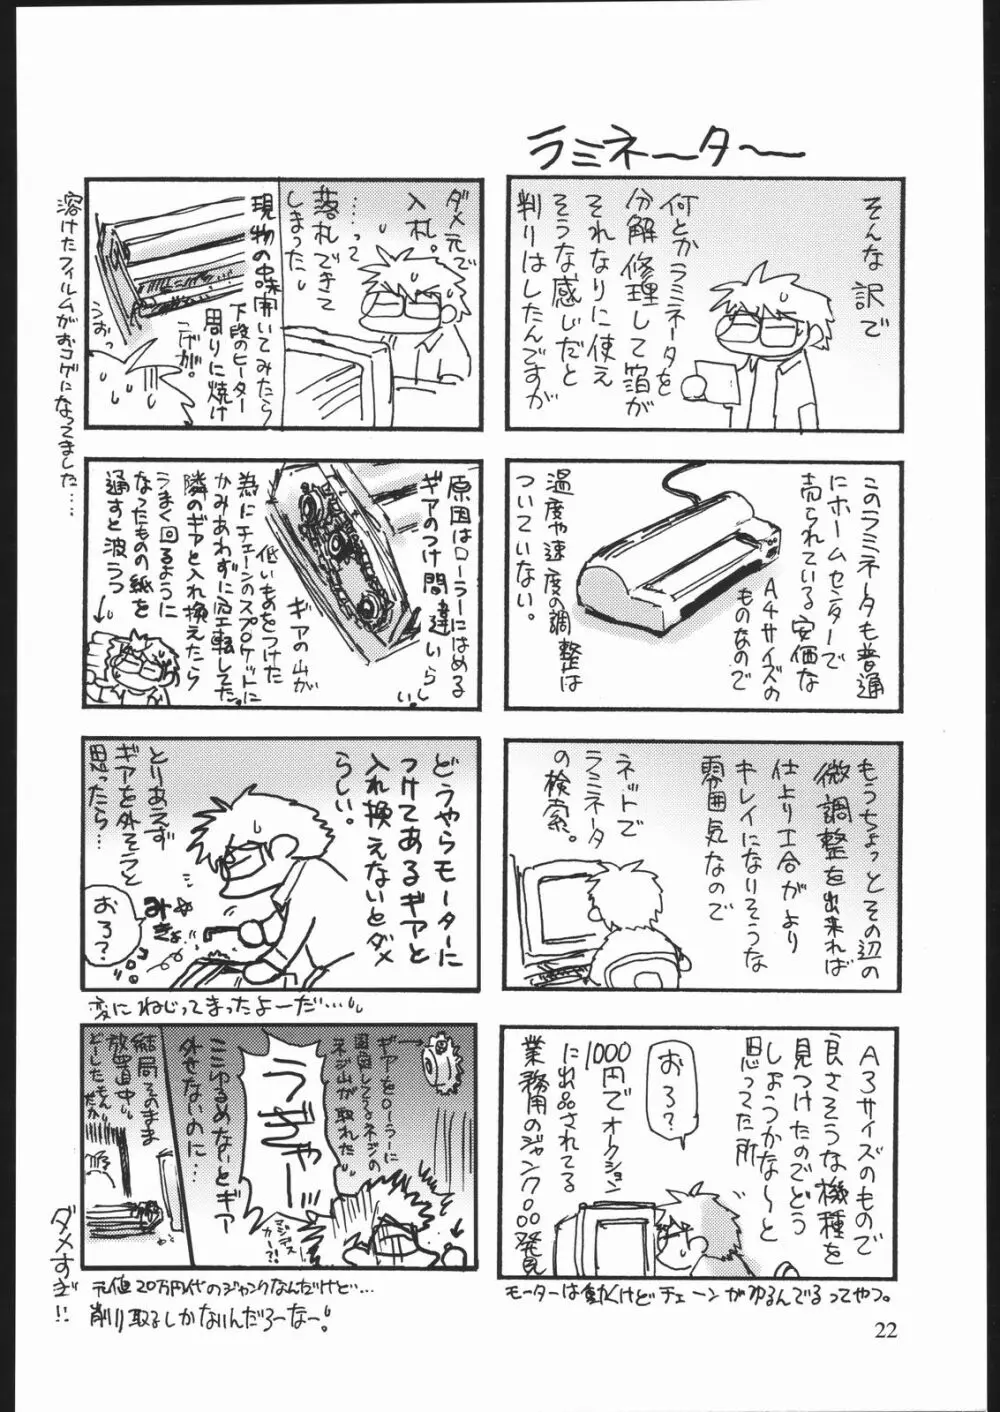 ラミネーター
そんな訳で
何とかラミネータを
分解修理して箔が
それなりに使え
そうな感じだと
判りはしたんですが
このラミネータも普通
にホームセンターで
売られている安価な
A4サイズの
ものなので
温度や速度の調整は
ついていない。
もうちょっとその辺の
微調整を出来れば
仕上り工合がより
キレイになりそうな
雰囲気なので
ネットで
ラミネータ
の検索。
A3サイズのもので
良さそうな機種を
見つけたのでどう
しようかな〜と
思ってた所
おろ?
1000円でオークション
に出品されてる
業務用のジャンク品発見
モーターは動くけどチェーンがゆるんでるってやつ。
ダメ元で
入札。
……って
落札できて
しまったし
現物の中味開いてみたら
下段のヒーター
周りに焼け
こげが。
うおっ
溶けたフィルムがおコゲになってました…。
原因はローラーにはめる
ギアのつけ間違いらしい。
ギアの山が
低いものをつけた
為にチェーンのスプロケットに
かみあわずに空転してた。
隣のギアと入れ換えたら
うまく回るように
なったものの紙を
通すと波うつ
どうやらモーターに
つけてあるギアと
入れ換えないとダメ
らしい。
とりあえず
ギアを外そうと
思ったら…
みきょ
おろ?
変にねじってまったよーだ…。
ギアをローラーに
固定してるネジの
ネジ山が取れた
うぎゃー
マジデスカー?!
ここゆるめないとギア
外せないのに…
結局そのまま
放置中。
どーしたもんだか
元値20万円代のジャンクなんだけど…
削り取るしかないんだろーなー。
ダメすぎ!!
22